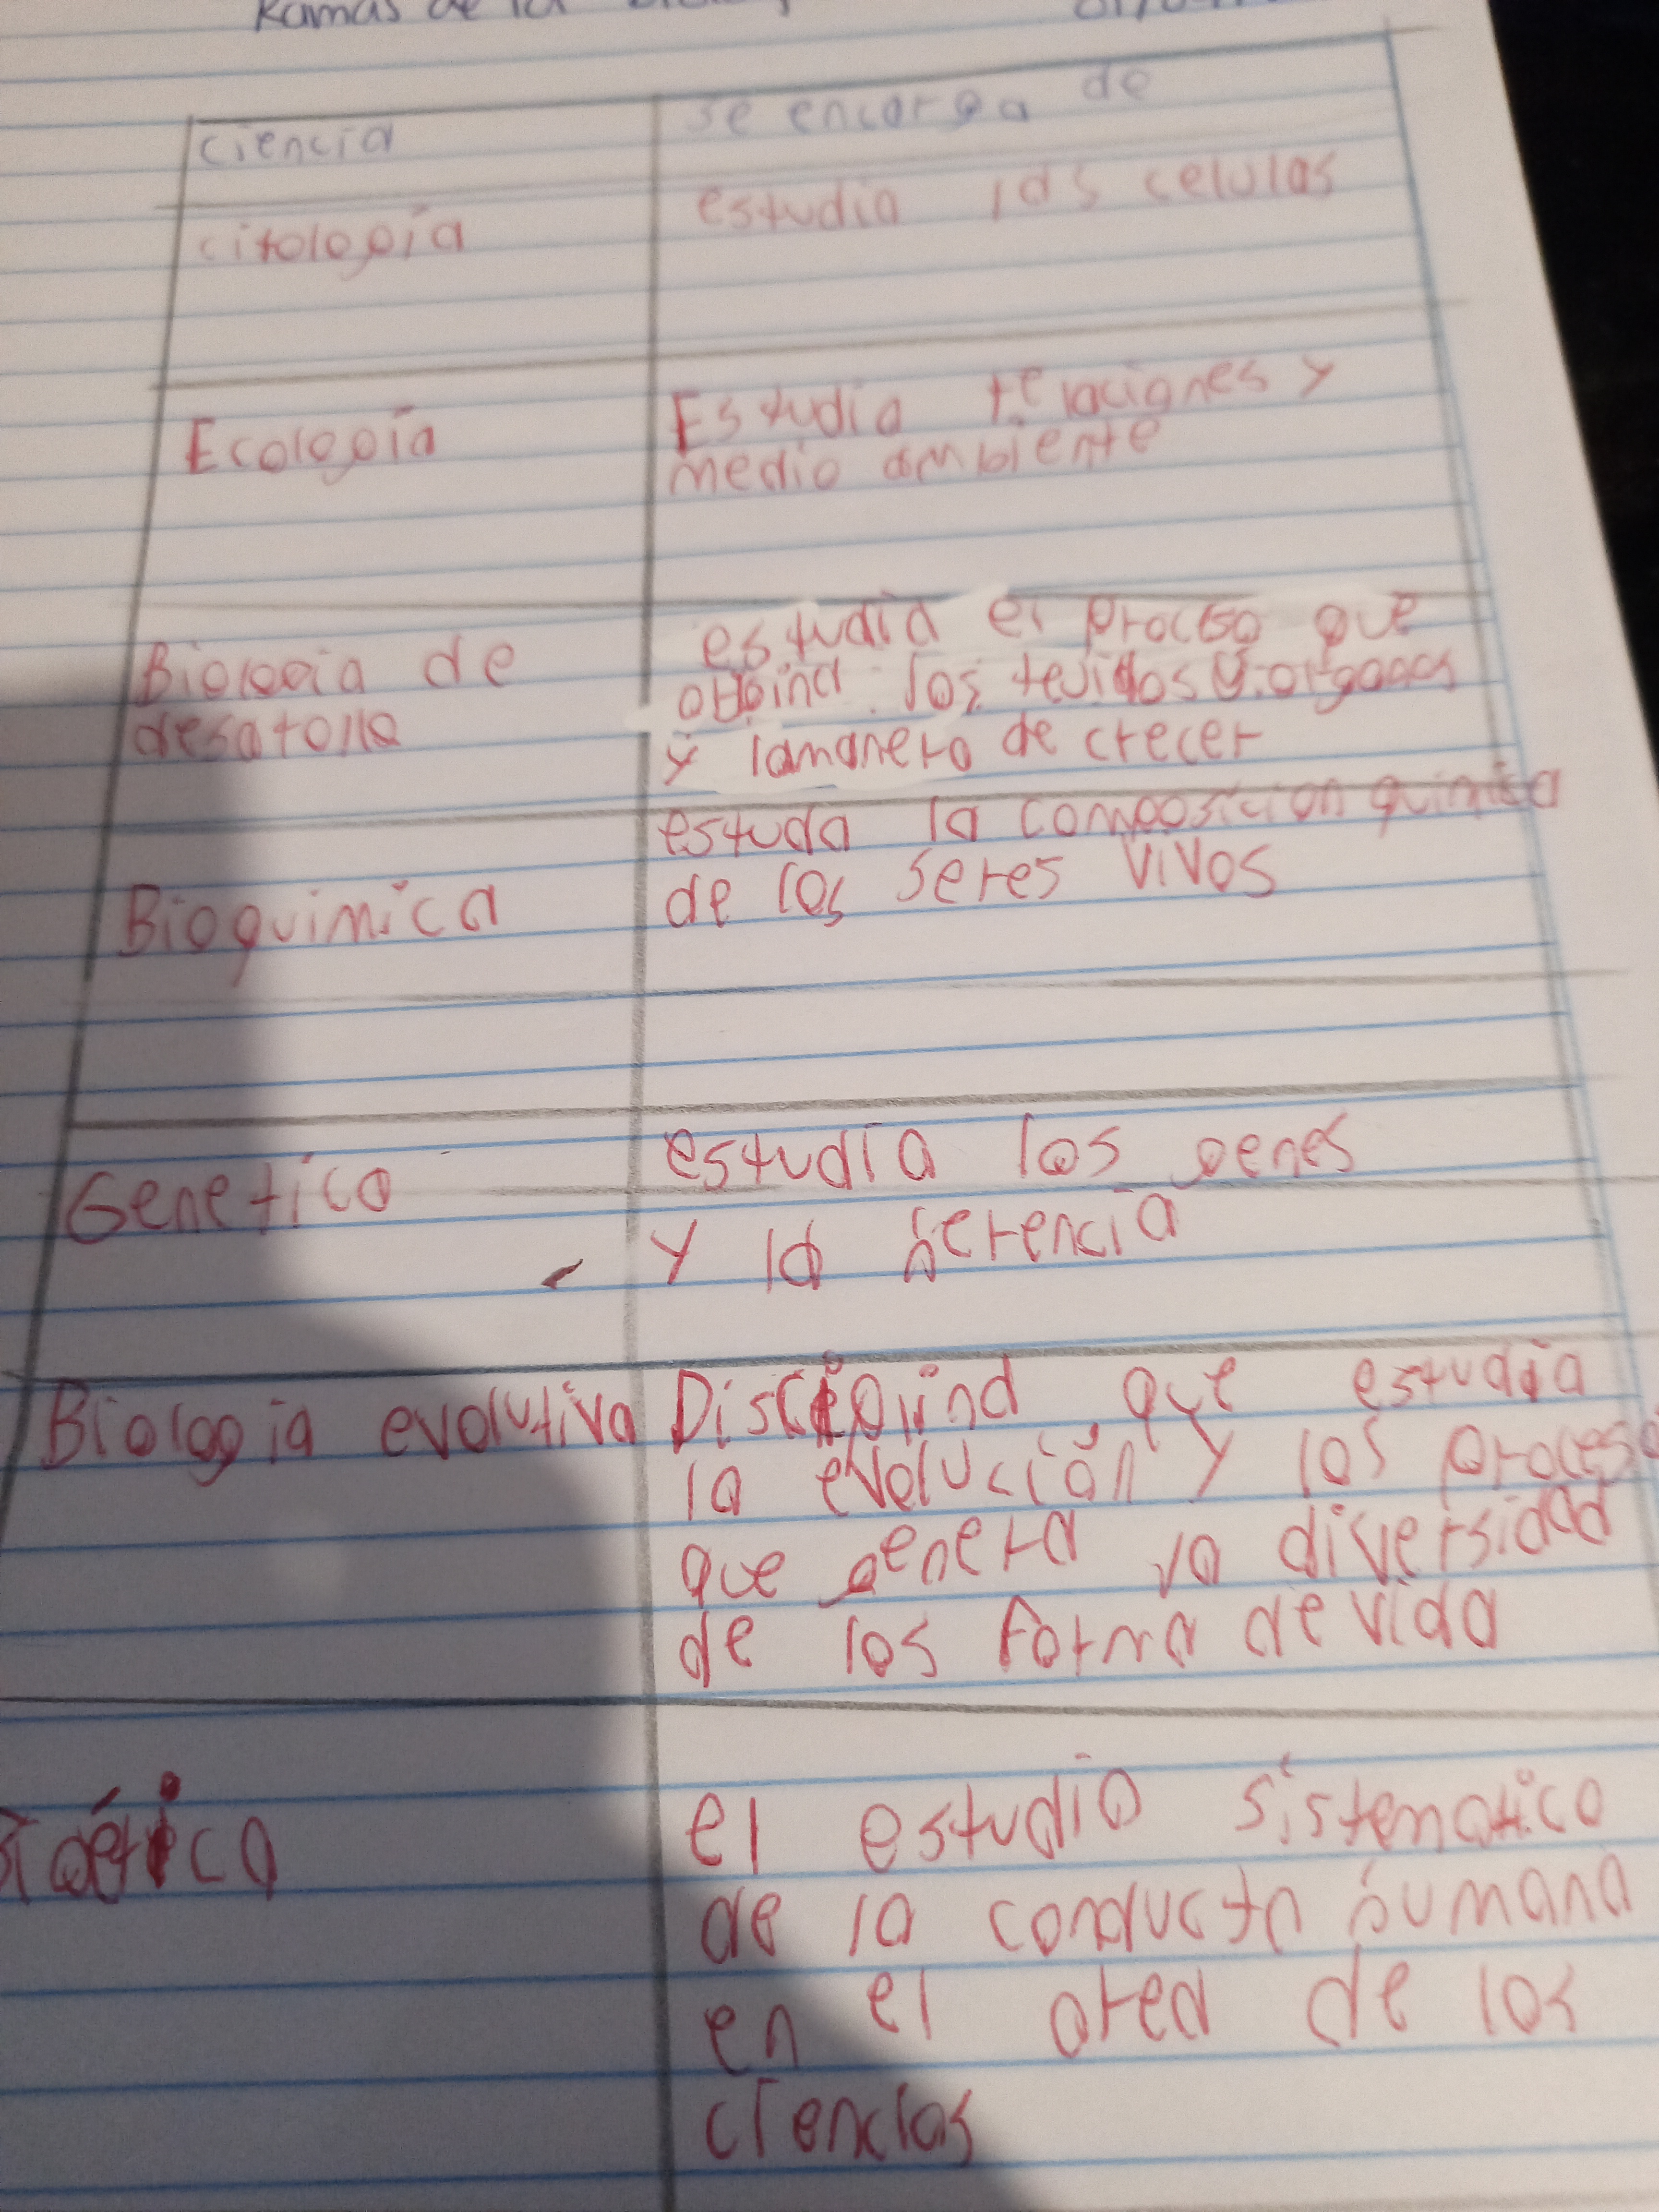 Ramas de la
ciencia
se encarga de
citología
estudia las celulas
Ecología
Estudia relaciones y
medio ambiente
Biología de
desarollo
estudia el proceso que
origina los tejidos y organos
y lamanera de crecer
Bioquimica
estuda la composicion quimica
de los seres vivos
Genetica
estudia los genes
y la herencia
Biologia evolutiva
que estudia
la evolución y los proceso
que genera la diversidad
de las forma de vida
el estudio sistematico
de la conducta humana
en el area de las
ciencias